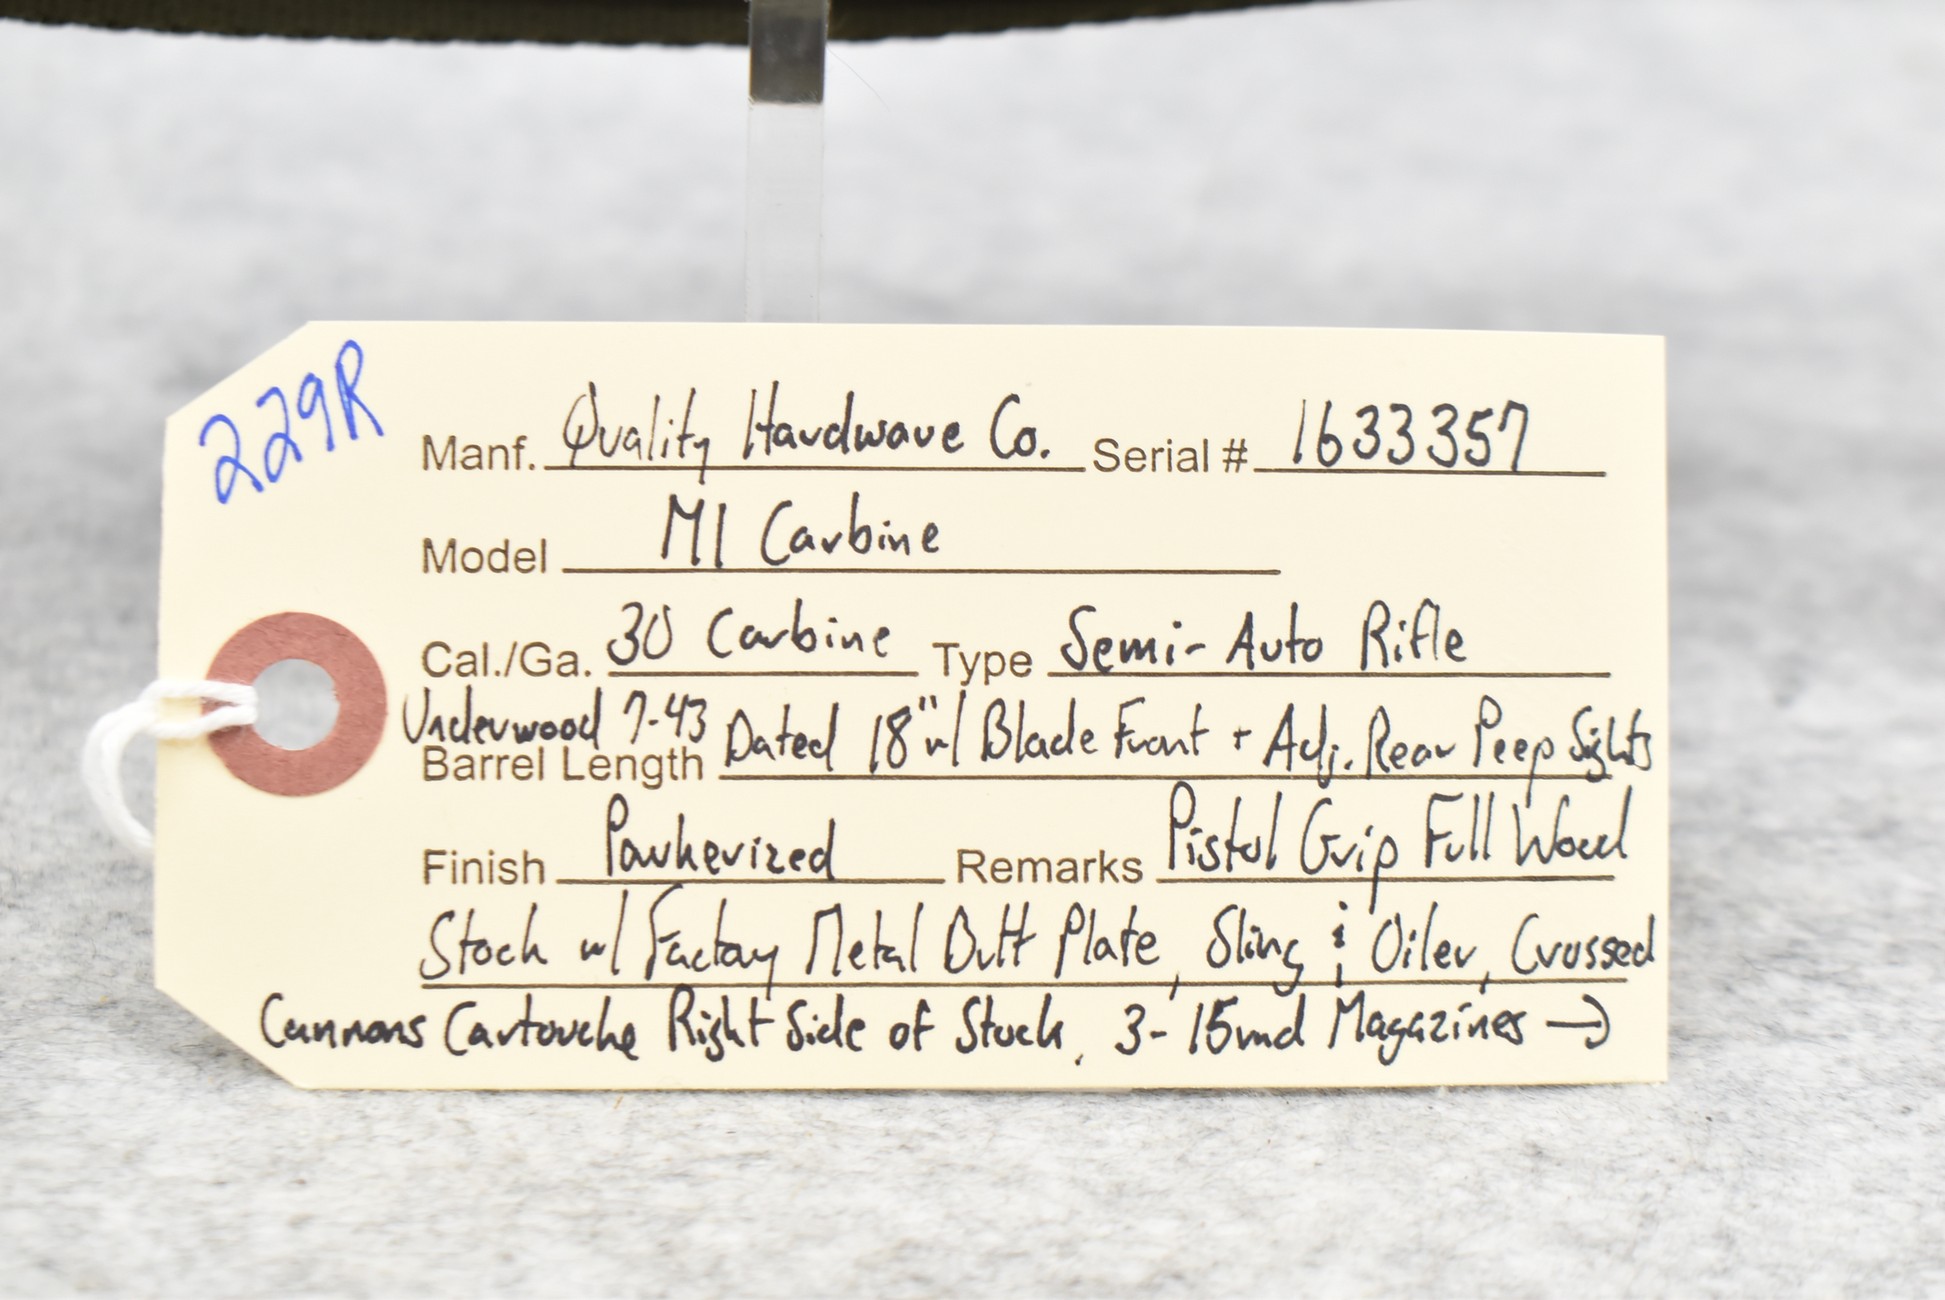 229R
Manf. Quality Hardware Co. Serial # 1633357
Model M1 Carbine
Cal./Ga. 30 Carbine Type Semi-Auto Rifle
Underwood 7-43
Barrel Length Dated 18" w/ Blade Front + Adj. Rear Peep Sights
Finish Parkerized Remarks Pistol Grip Full Wood
Stock w/ Factory Metal Butt Plate, Sling & Oiler, Crossed
Cannons Cartouche Right Side of Stock. 3-15rnd Magazines →